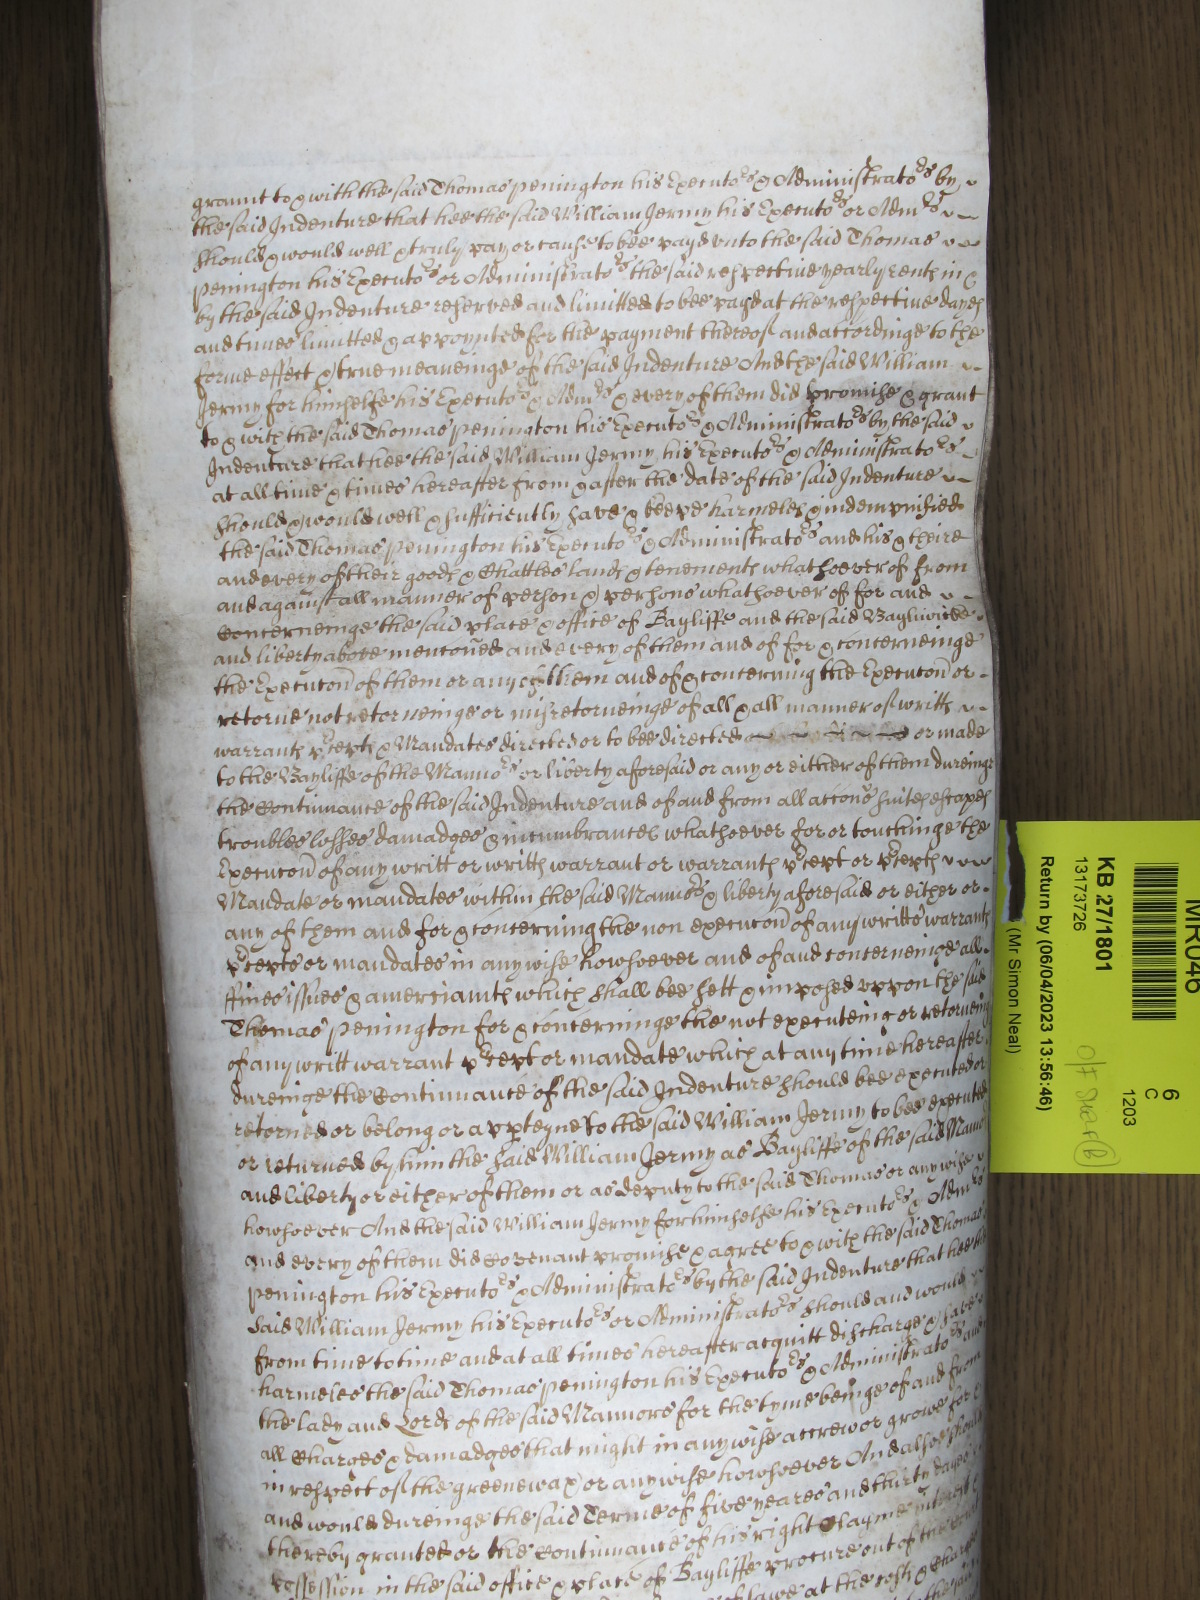 graunt to & with the said Thomas Penington his Executors & Administrators by
the said Indenture that hee the said William Jermy his Executors or Admrs
should & would well & truly pay or cause to bee payd unto the said Thomas
Penington his Executors or Administrators the said respective yearly rents in &
by the said Indenture reserved and limitted to bee payd at the respective dayes
and times limitted & appoynted for the payment thereof and accordinge to the
forme effect & true meaneinge of the said Indenture And the said William
Jermy for himselfe his Executors & Admrs & every of them did promise & grant
to & with the said Thomas Penington his Executors & Administrators by the said
Indenture that hee the said William Jermy his Executors & Administrators
at all time & times hereafter from & after the date of the said Indenture
should & would well & sufficiently save & keepe harmeles & indempnified
the said Thomas Penington his Executors & Administrators and his & theire
and every of their goods & Chattles lands & tenements whatsoever of from
and against all manner of person & persons whatsoever of for and
Concerneinge the said place & office of Bayliffe and the said Bayliwicke
and liberty above menconed and every of them and of for & concerneinge
the Execucon of them or any of them and of & concerning the Execucon or
retorne not retorneinge or misretorneinge of all & all manner of writts
warrants pcepts & Mandates directed or to bee directed or made
to the Bayliffe of the Mannors or liberty aforesaid or any or either of them dureinge
the Continuance of the said Indenture and of and from all accons suites escapes
troubles losses damadges & incumbrances whatsoever for or touchinge the
Execucon of any writt or writts warrant or warrants pcept or pcepts
Mandate or mandates within the said Mannors & liberty aforesaid or either or
any of them and for & concerning the non execucon of any writts warrants
pcepts or mandates in any wise howsoever and of and concerneinge all
ffines issues & amerciamts which shall bee sett & imposed uppon the said
Thomas Penington for & concerninge the not executeing or retorneing
of any writt warrant pcept or mandate which at any time hereafter
dureinge the Continuance of the said Indenture should bee executed or
retorned or belong or apperteyne to the said William Jermy to bee executed
or returned by him the said William Jermy as Bayliffe of the said Mannors
and liberty or either of them or as deputy to the said Thomas or any wise
howsoever And the said William Jermy for himselfe his Executors & Admrs
and every of them did Covenant promise & agree to & with the said Thomas
Penington his Executors & Administrators by the said Indenture that hee the
said William Jermy his Executors or Administrators should and would
from time to time and at all times hereafter acquitt discharge & save
harmeles the said Thomas Penington his Executors & Administrators and
the lady and Lords of the said Mannors for the tyme beinge of and from
all Charges & damadges that might in any wise accrew or growe for
in respect of the greenewax or any wise howsoever And alsoe should
and would dureinge the said Terme of five yeares and thirty dayes
thereby granted or the Continuance of his right Clayme interest
possession in the said office & place of Bayliffe procure out of the
of lawe at the costs & Charges
MR046
KB 27/1801
13173726
Return by (06/04/2023 13:56:46)
(Mr Simon Neal)
6
C
1203